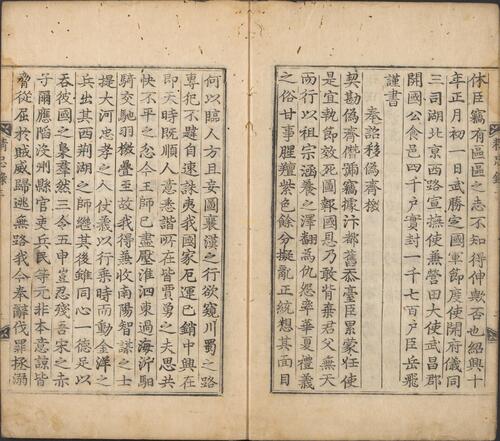 休臣竊有區區之志不知得伸與否也紹興十
年正月初一日武勝定國軍節度使開府儀同
三司湖北京西路宣撫使兼營田大使武昌郡
開國公食邑四千戶實封一千七百戶臣岳飛
謹書
奉詔移偽齊檄
契勘偽齊僭號竊據汴都舊忝臺臣累蒙任使
是宜執節效死圖報國恩乃敢背棄君父無天
而行以祖宗涵養之澤翻為仇怨率華夏禮義
之俗甘事腥羶紫色餘分擬亂正統想其面目
何以臨人方且妄圖襄漢之行欲窺川蜀之路
專犯不韙自速誅夷我國家厄運已銷中興在
即天時既順人意悉諧所在皆賈勇之夫思共
快不平之忿今王師已盡壓淮泗東過海沂馹
騎交馳羽檄疊至故我得兼收南陽智謀之士
提大河忠孝之人仗義以行乘時而動金洋之
兵出其西荊湖之師繼其後雖同心一德足以
吞彼國之梟羣然三令五申豈忍殘吾宋之赤
子爾應陷沒州縣官吏兵民等元非本意諒皆
脅從屈於賊威歸逃無路我今奉辭伐罪拯溺